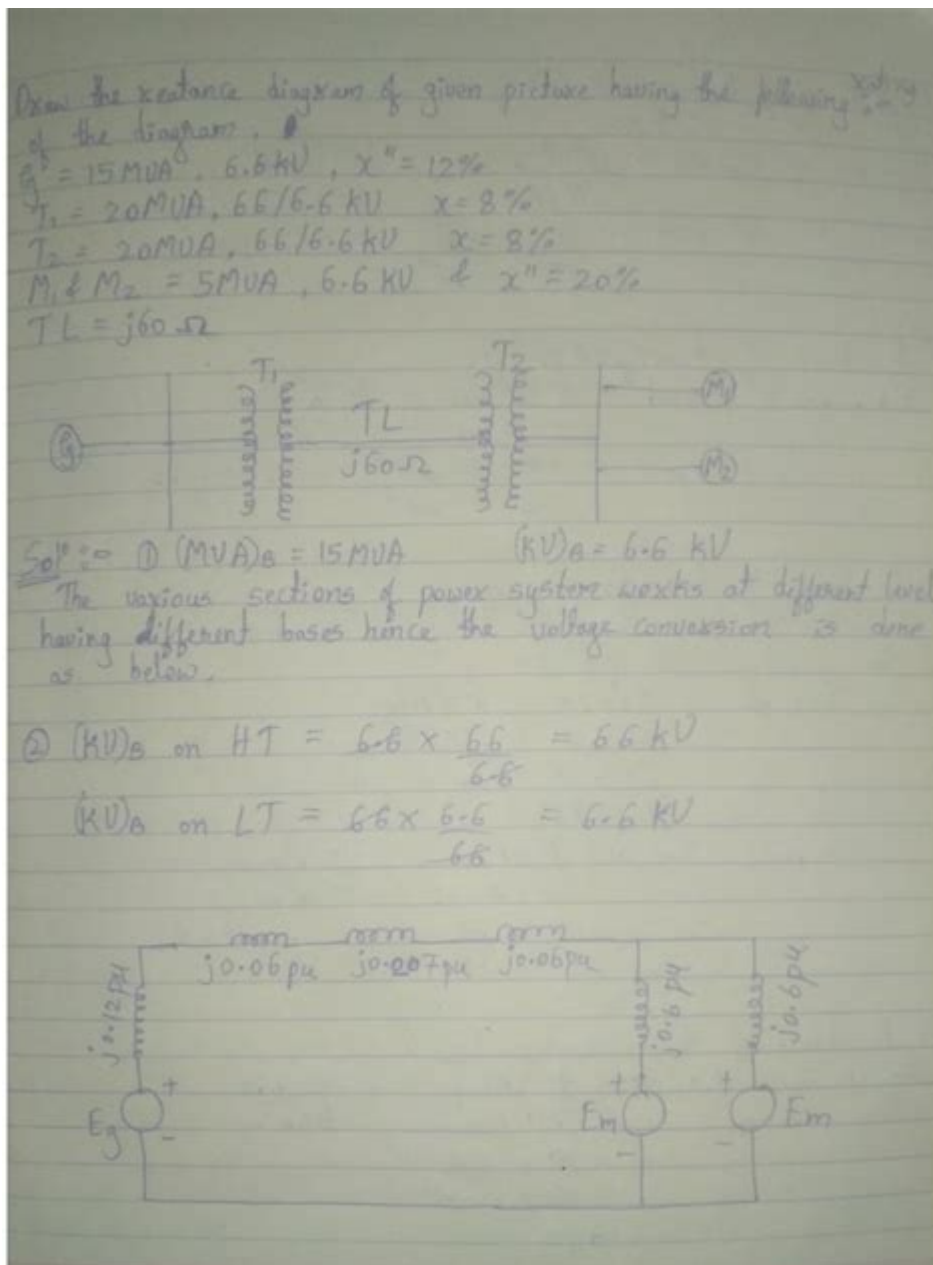 Draw the reatance diagram of given picture having the following rating :-
of the diagram.
G = 15 MVA, 6.6 kV, x" = 12%
T1 = 20 MVA, 66/6.6 kV x = 8%
T2 = 20 MVA, 66/6.6 kV x = 8%
M1 & M2 = 5 MVA, 6.6 KV & x" = 20%
TL = j60 Ω
T1 T2
TL
G j60 Ω M1
M2
Soln :- ① (MVA)B = 15 MVA (KV)B = 6.6 kV
The various sections of power system works at different level
having different bases hence the voltage conversion is done
as below.
② (KV)B on HT = 6.6 × 66/6.6 = 66 kV
(KV)B on LT = 66 × 6.6/66 = 6.6 KV
j0.06 pu j0.207 pu j0.06 pu
j0.12 pu j0.6 pu j0.6 pu
+ + +
Eg Em Em
- - -